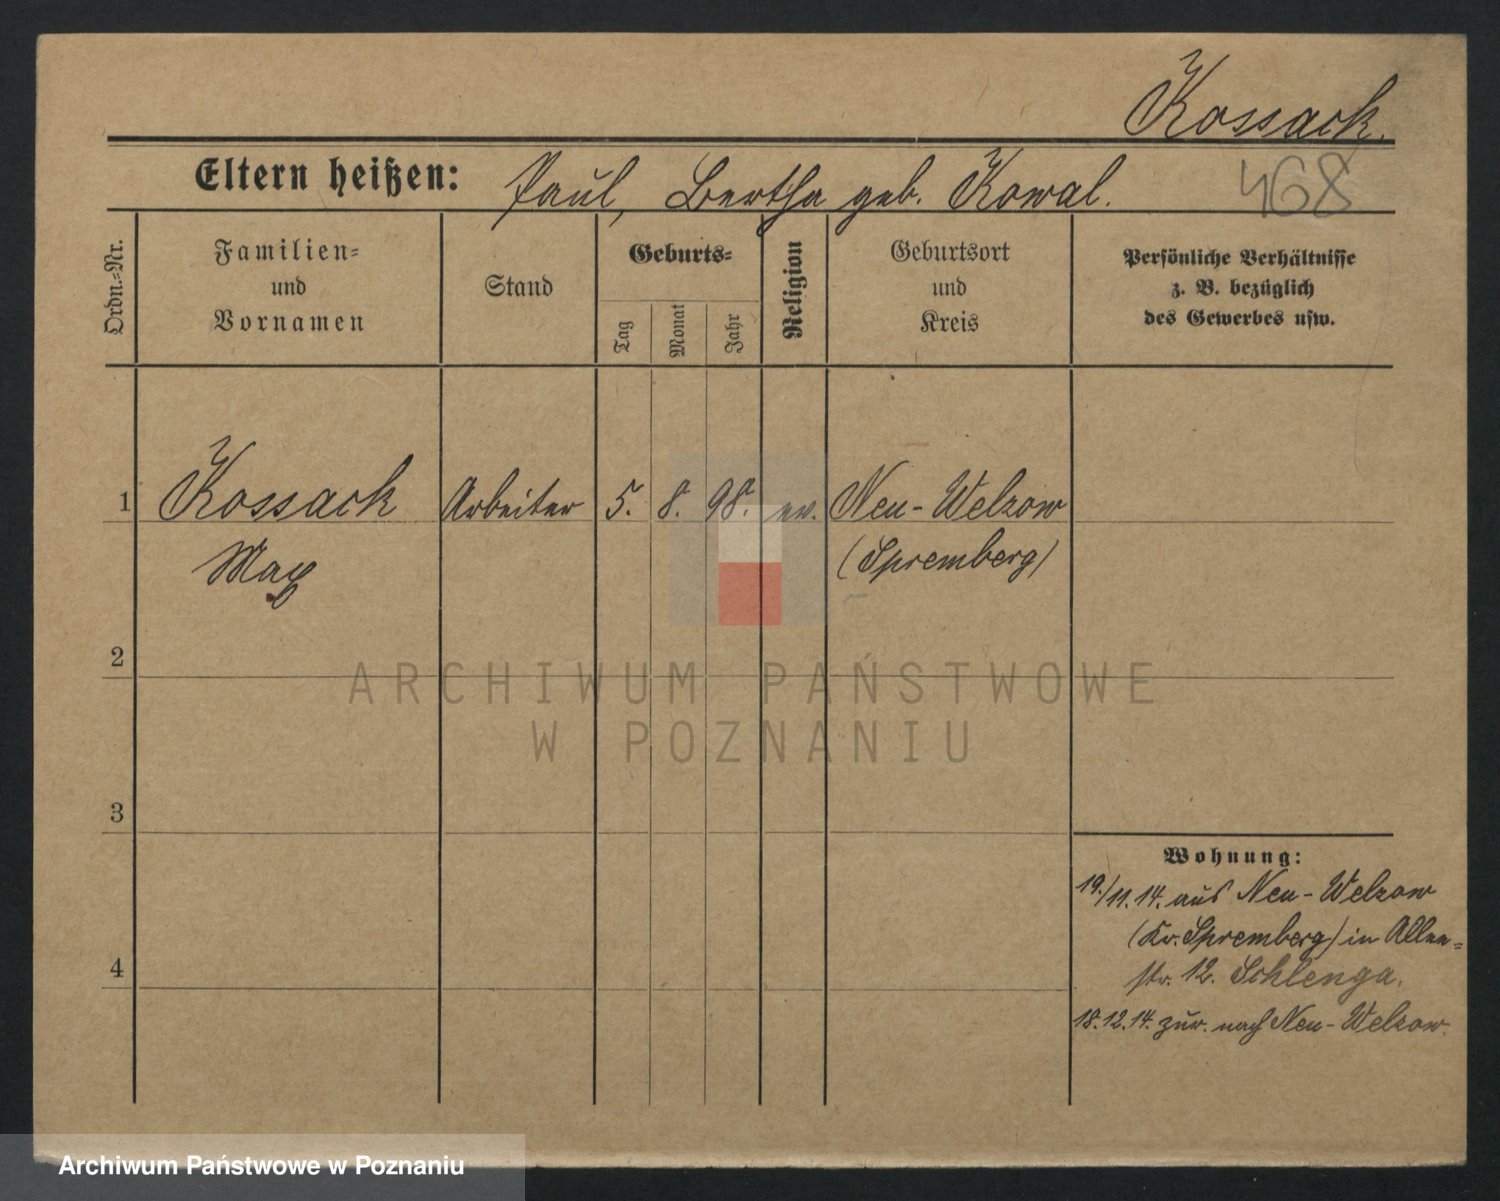 Kossack.
Eltern heißen: Paul, Bertha geb. Kowal.
468
Ordn.-Nr.
Familien-
und
Vornamen
Stand
Geburts-
Tag
Monat
Jahr
Religion
Geburtsort
und
Kreis
Persönliche Verhältnisse
z. B. bezüglich
des Gewerbes usw.
1 Kossack Arbeiter 5. 8. 98. ev. Neu-Welzow
Max (Spremberg)
2
ARCHIWUM PAŃSTWOWE
W POZNANIU
3
Wohnung:
19./11.14. aus Neu-Welzow
(Kr. Spremberg) in Allee-
4
str. 12. Schlenga.
18.12.14. zur. nach Neu-Welzow.
Archiwum Państwowe w Poznaniu